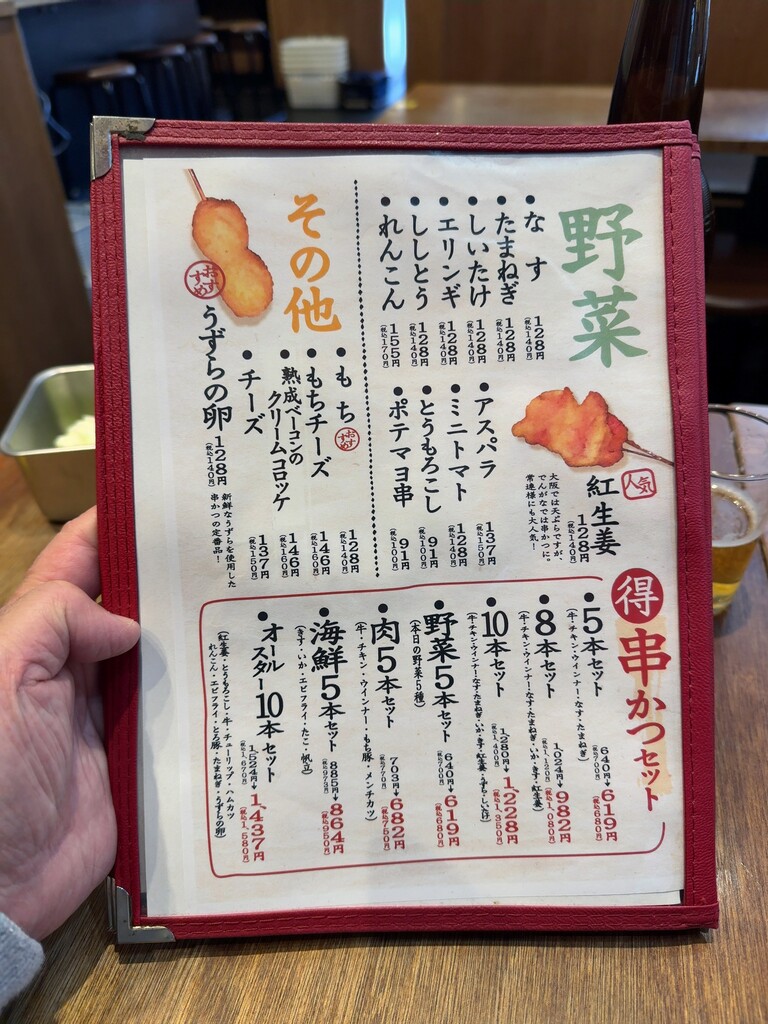 野菜
なす
128円
(税込140円)
たまねぎ
128円
(税込140円)
しいたけ
128円
(税込140円)
エリンギ
128円
(税込140円)
ししとう
128円
(税込140円)
れんこん
155円
(税込170円)
人気
紅生姜
128円
(税込140円)
大阪では天ぷらですが、
でんがなでは串かつに。
常連様にも大人気!
アスパラ
137円
(税込150円)
ミニトマト
128円
(税込140円)
とうもろこし
91円
(税込100円)
ポテマヨ串
91円
(税込100円)
その他
もち
おすすめ
128円
(税込140円)
もちチーズ
146円
(税込160円)
熟成ベーコンの
クリームコロッケ
146円
(税込160円)
チーズ
137円
(税込150円)
おすすめ
うずらの卵
128円
(税込140円)
新鮮なうずらを使用した
串かつの定番品!
得 串かつセット
5本セット
(牛・チキン・ウインナー・なす・たまねぎ)
640円→619円
(税込700円) (税込680円)
8本セット
(牛・チキン・ウインナー・なす・たまねぎ・いか・きす・紅生姜)
1,024円→982円
(税込1,120円) (税込1,080円)
10本セット
(牛・チキン・ウインナー・なす・たまねぎ・いか・きす・紅生姜・うずら・しいたけ)
1,280円→1,228円
(税込1,400円) (税込1,350円)
野菜5本セット
(本日の野菜5種)
640円→619円
(税込700円) (税込680円)
肉5本セット
(牛・チキン・ウインナー・もち豚・メンチカツ)
703円→682円
(税込770円) (税込750円)
海鮮5本セット
(きす・いか・エビフライ・たこ・帆立)
885円→864円
(税込973円) (税込950円)
オール
スター10本セット
1,524円→1,437円
(税込1,670円) (税込1,580円)
(紅生姜・とうもろこし・牛・チューリップ・ハムカツ
れんこん・エビフライ・とろ豚・たまねぎ・うずらの卵)